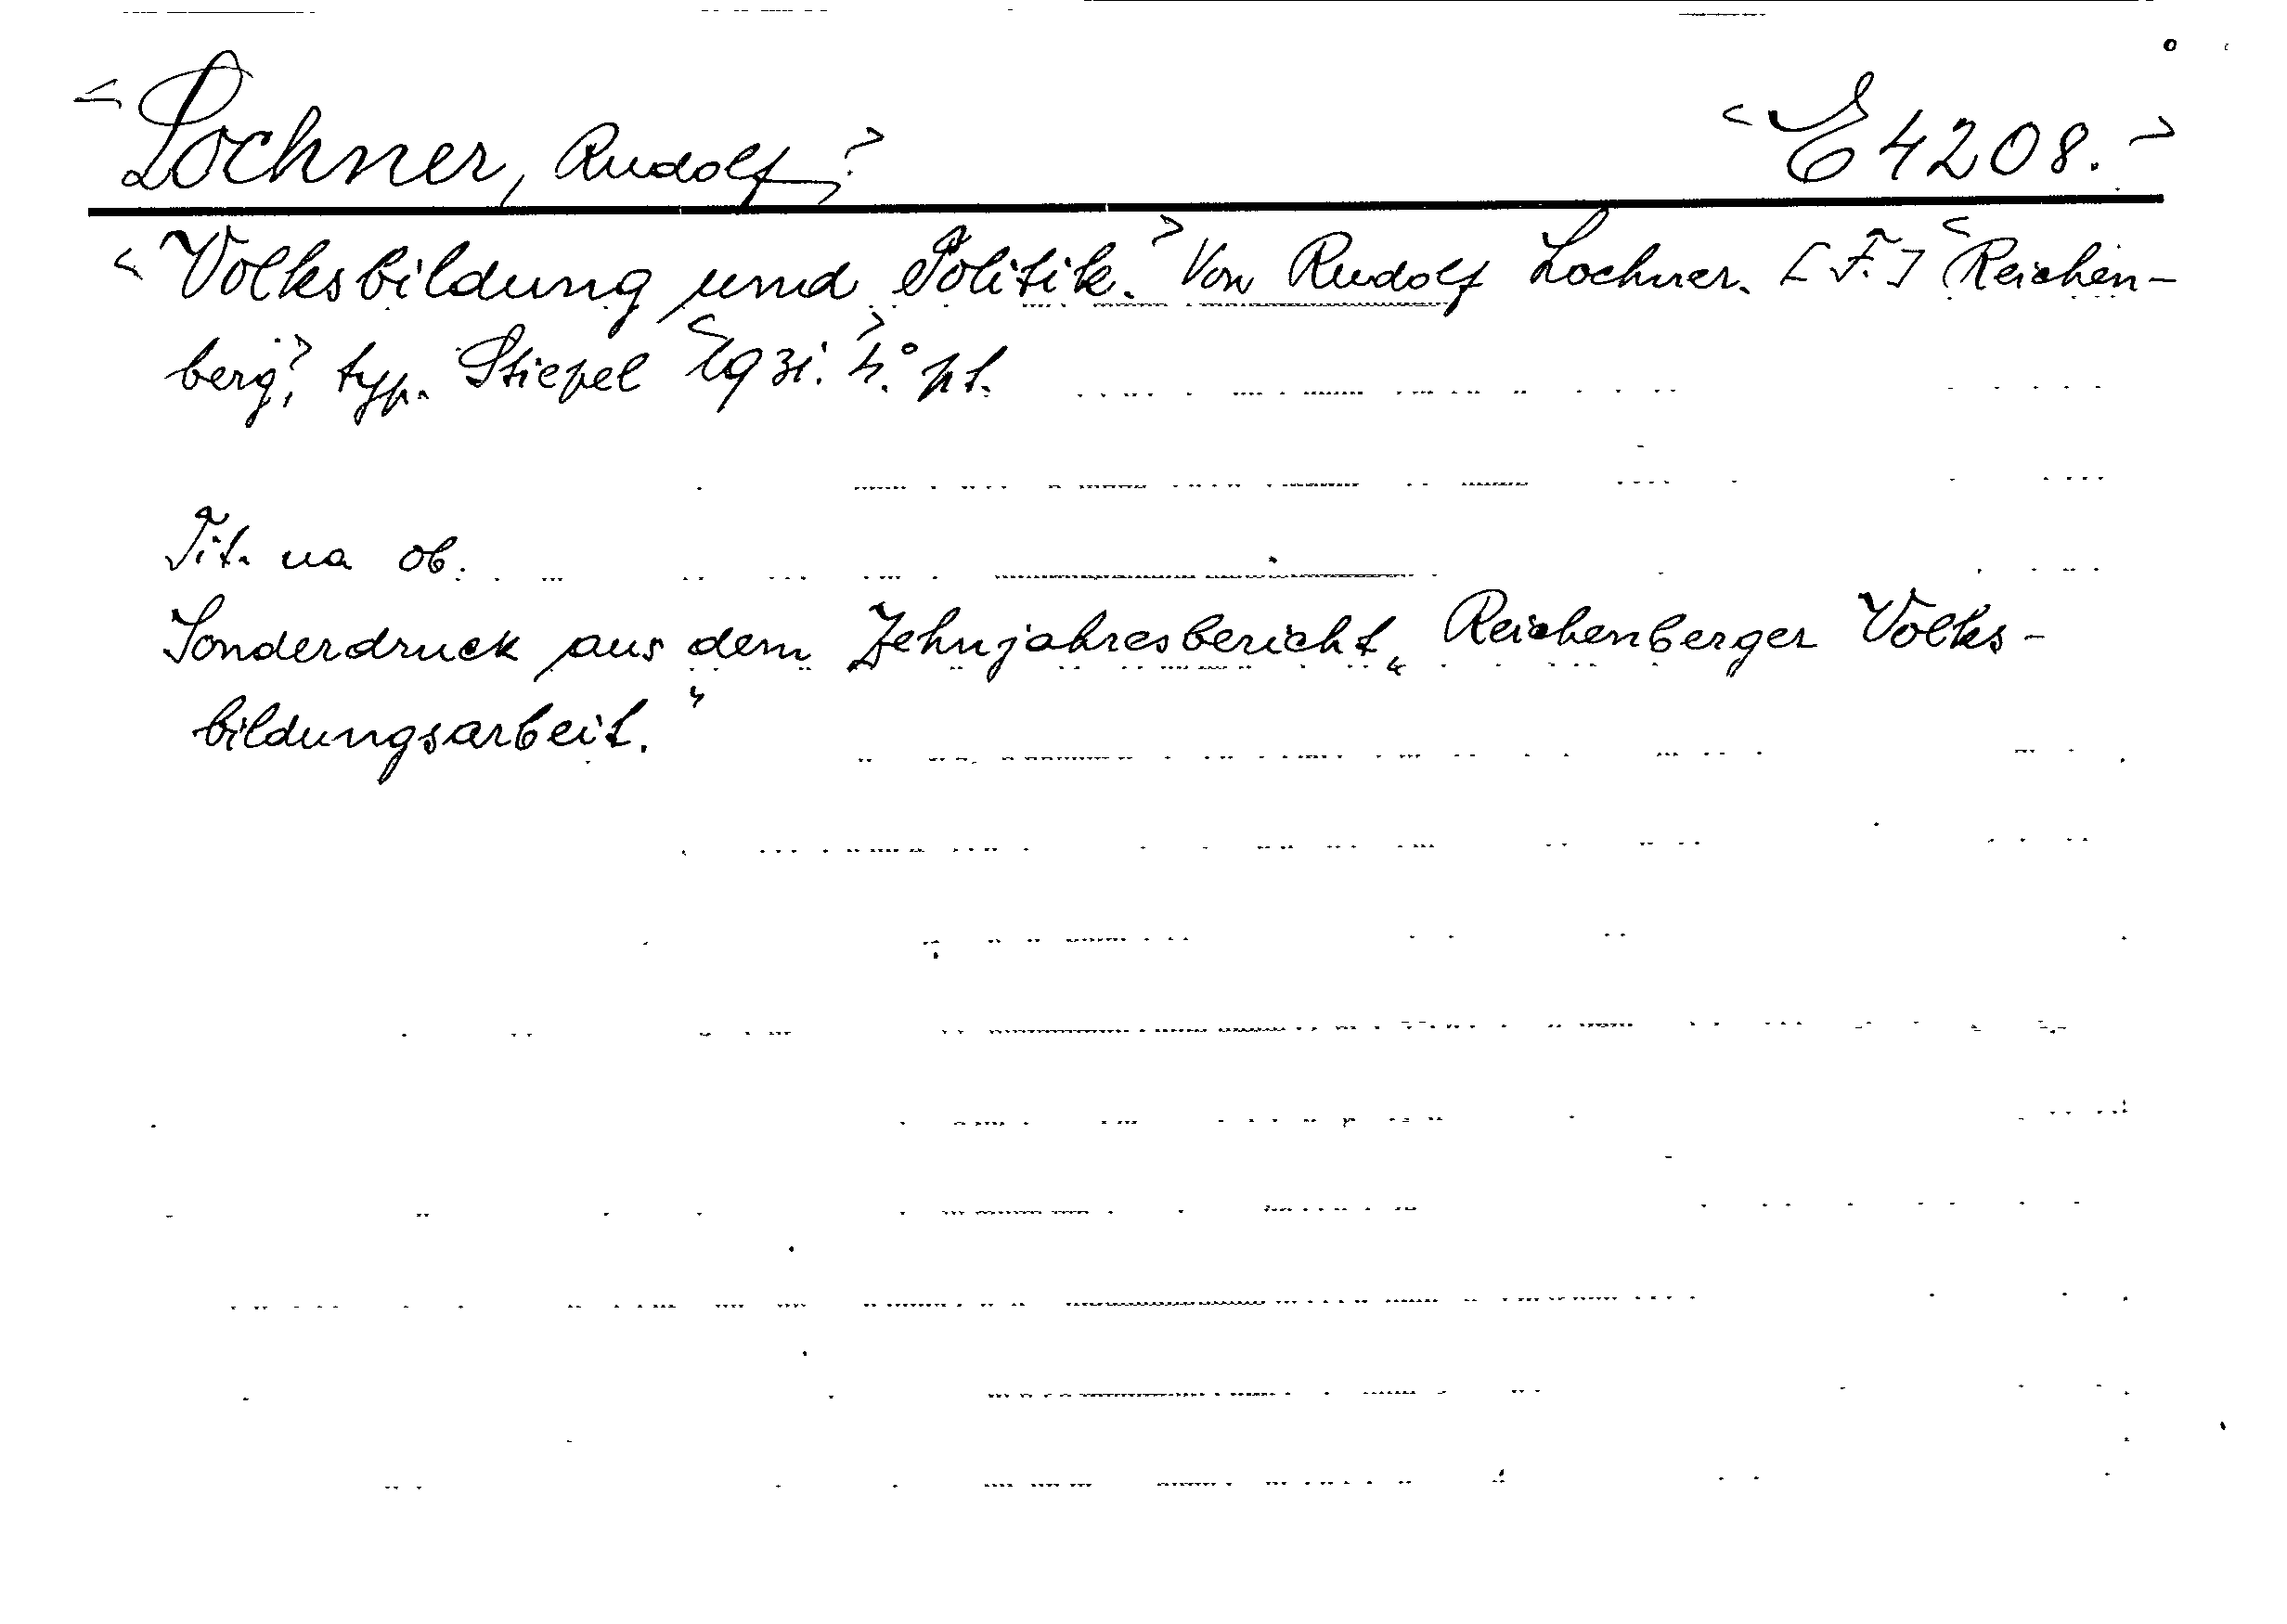 <Lochner, Rudolf.> <E 4208.>
<Volksbildung und Politik.> Von Rudolf Lochner. [F.] <Reichen-
berg,> typ. Stiepel <1931.> 4.° pt.
Tit. na ob.
Sonderdruck aus dem Zehnjahresbericht „Reichenberger Volks-
bildungsarbeit."